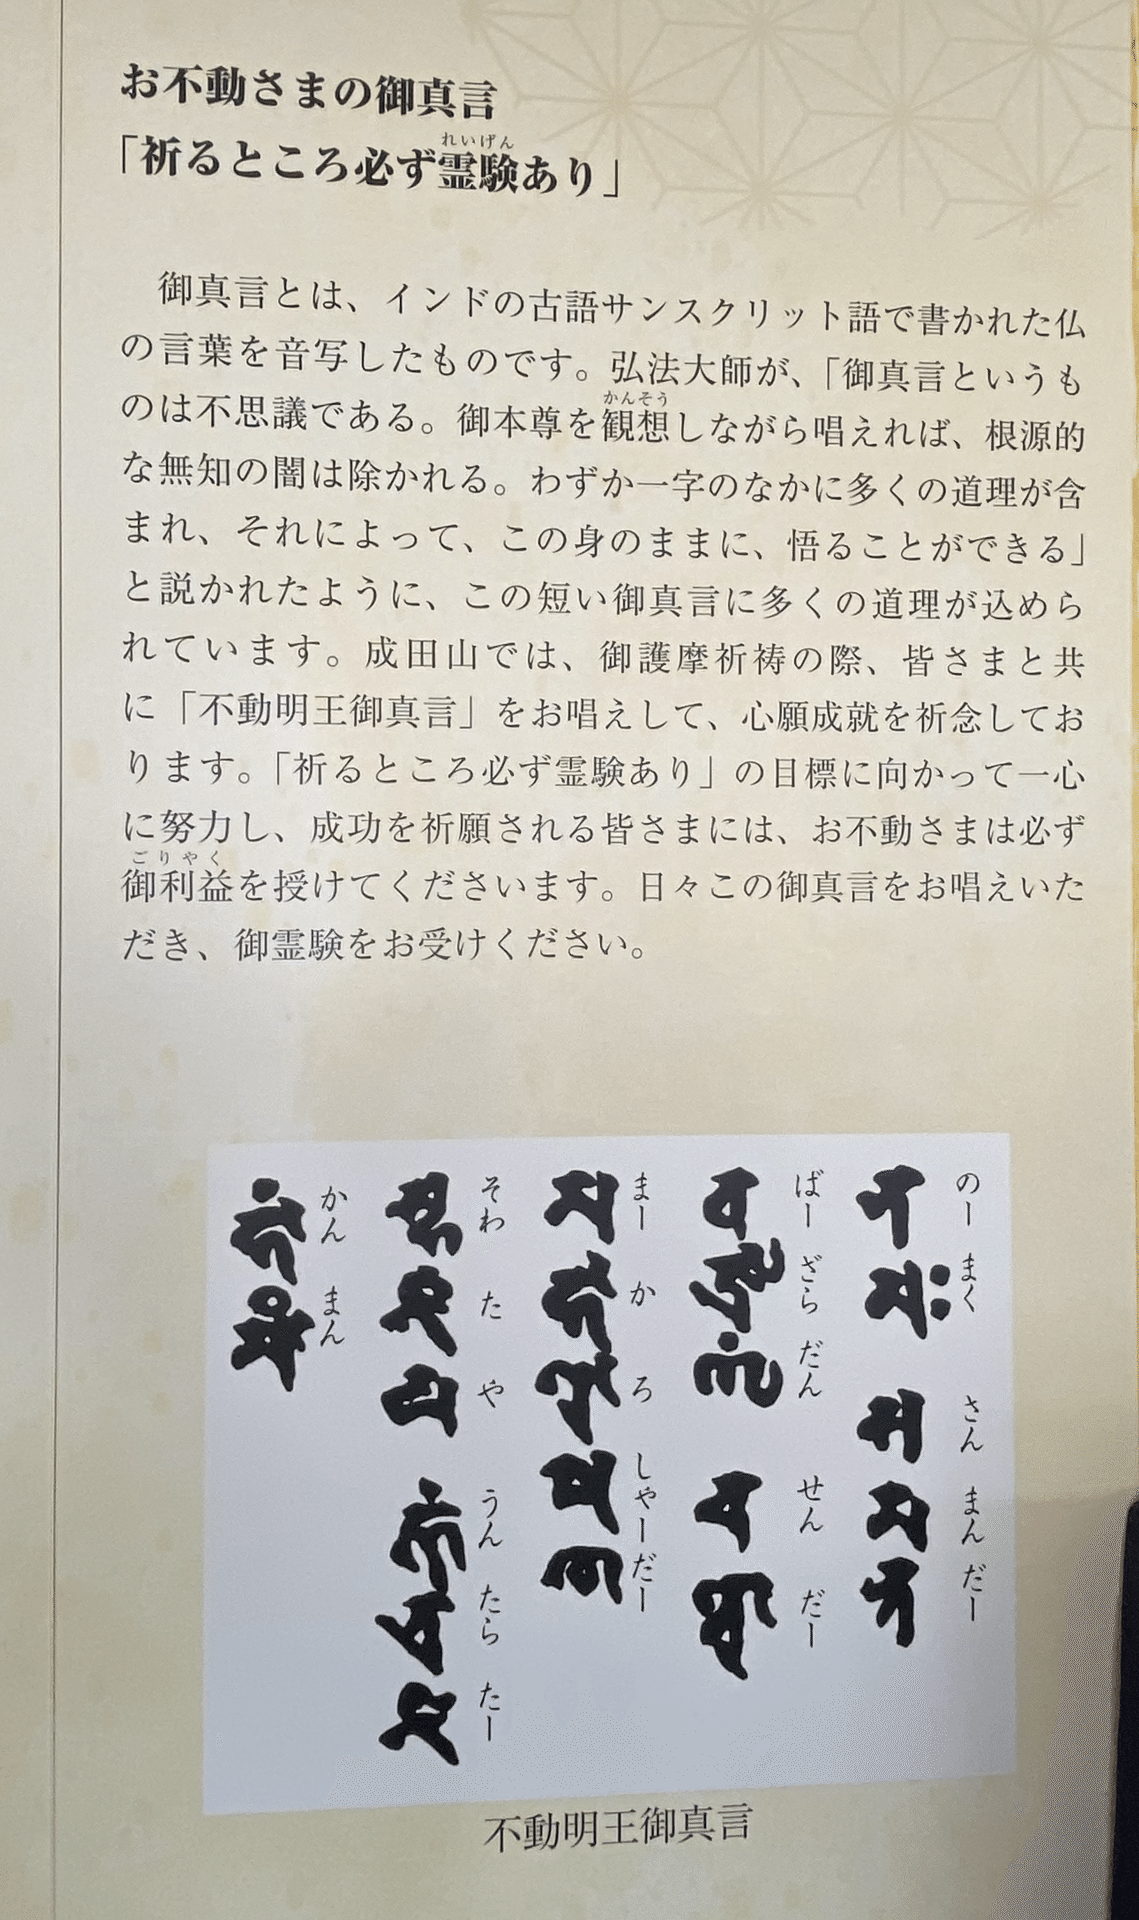 お不動さまの御真言
「祈るところ必ず霊験あり」
れいげん
御真言とは、インドの古語サンスクリット語で書かれた仏
の言葉を音写したものです。弘法大師が、「御真言というも
のは不思議である。御本尊を観想しながら唱えれば、根源的
かんそう
な無知の闇は除かれる。わずか一字のなかに多くの道理が含
まれ、それによって、この身のままに、悟ることができる」
と説かれたように、この短い御真言に多くの道理が込めら
れています。成田山では、御護摩祈祷の際、皆さまと共
に「不動明王御真言」をお唱えして、心願成就を祈念してお
ります。「祈るところ必ず霊験あり」の目標に向かって一心
に努力し、成功を祈願される皆さまには、お不動さまは必ず
御利益を授けてくださいます。日々この御真言をお唱えいた
ごりやく
だき、御霊験をお受けください。
のー まく さん まん だー
ばー ざら だん せん だー
まー か ろ しゃー だー
そわ た や うん たら たー
かん まん
不動明王御真言